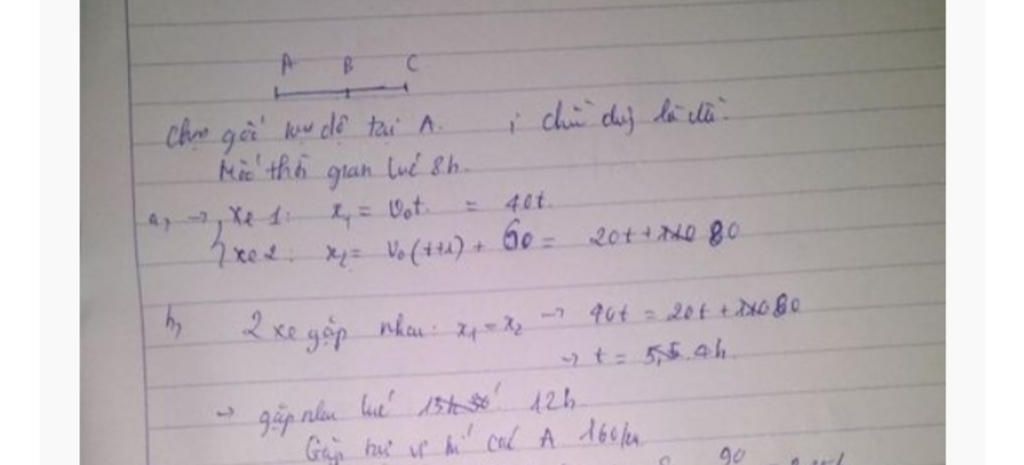 A B C
Chọn gốc toạ độ tại A. ; chiều dương là chiều
Mốc thời gian lúc 8h.
a, → xe 1: x₁ = v₀t. = 40t
xe 2: x₂ = v₀(t+1) + 60 = 20t + 80
b, 2 xe gặp nhau: x₁ = x₂ → 40t = 20t + 80
→ t = 4h.
→ gặp nhau lúc 12h
Gặp tại vị trí cách A 160km
90